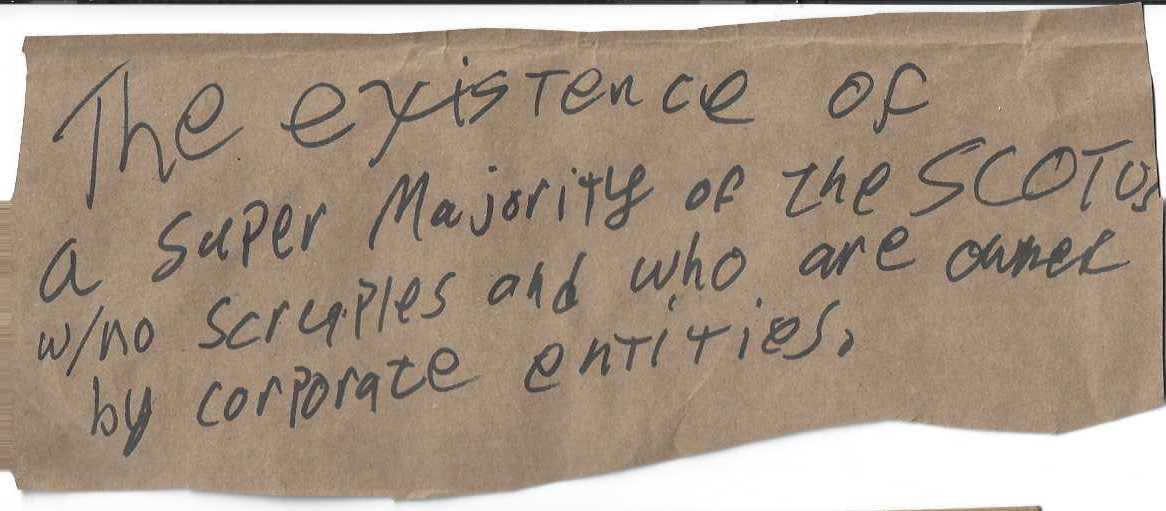 The existence of
a super Majority of the SCOTUS
w/no scruples and who are owned
by corporate entities.